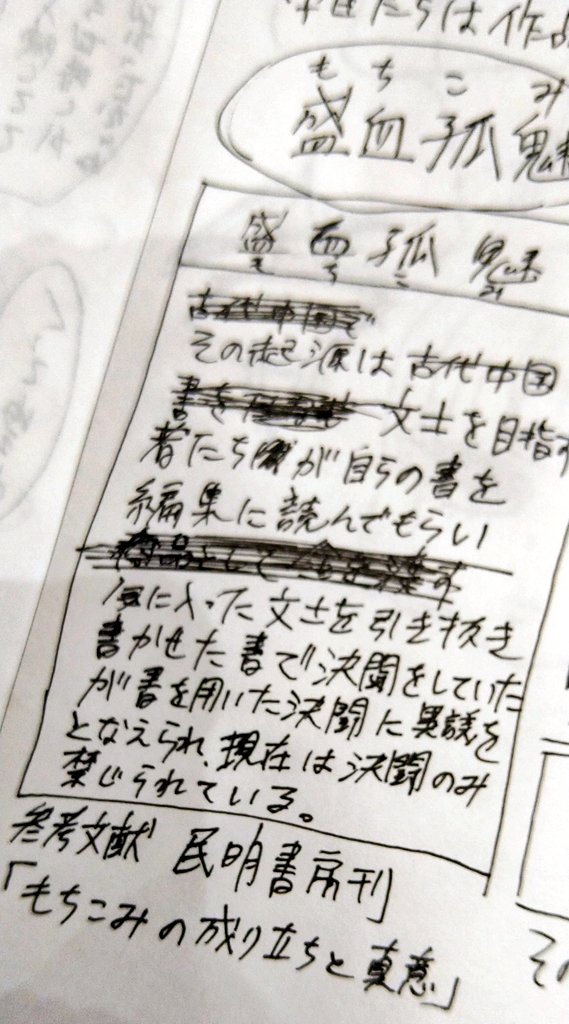 たちは作品
もちこみ
盛血孤魅
盛血孤魅
もちこみ
その起源は古代中国
文士を目指す
者たちが自らの書を
編集に読んでもらい
気に入った文士を引き抜き
書かせた書で決闘をしていた
が書を用いた決闘に異議を
となえられ、現在は決闘のみ
禁じられている。
参考文献 民明書房刊
「もちこみの成り立ちと真意」
その